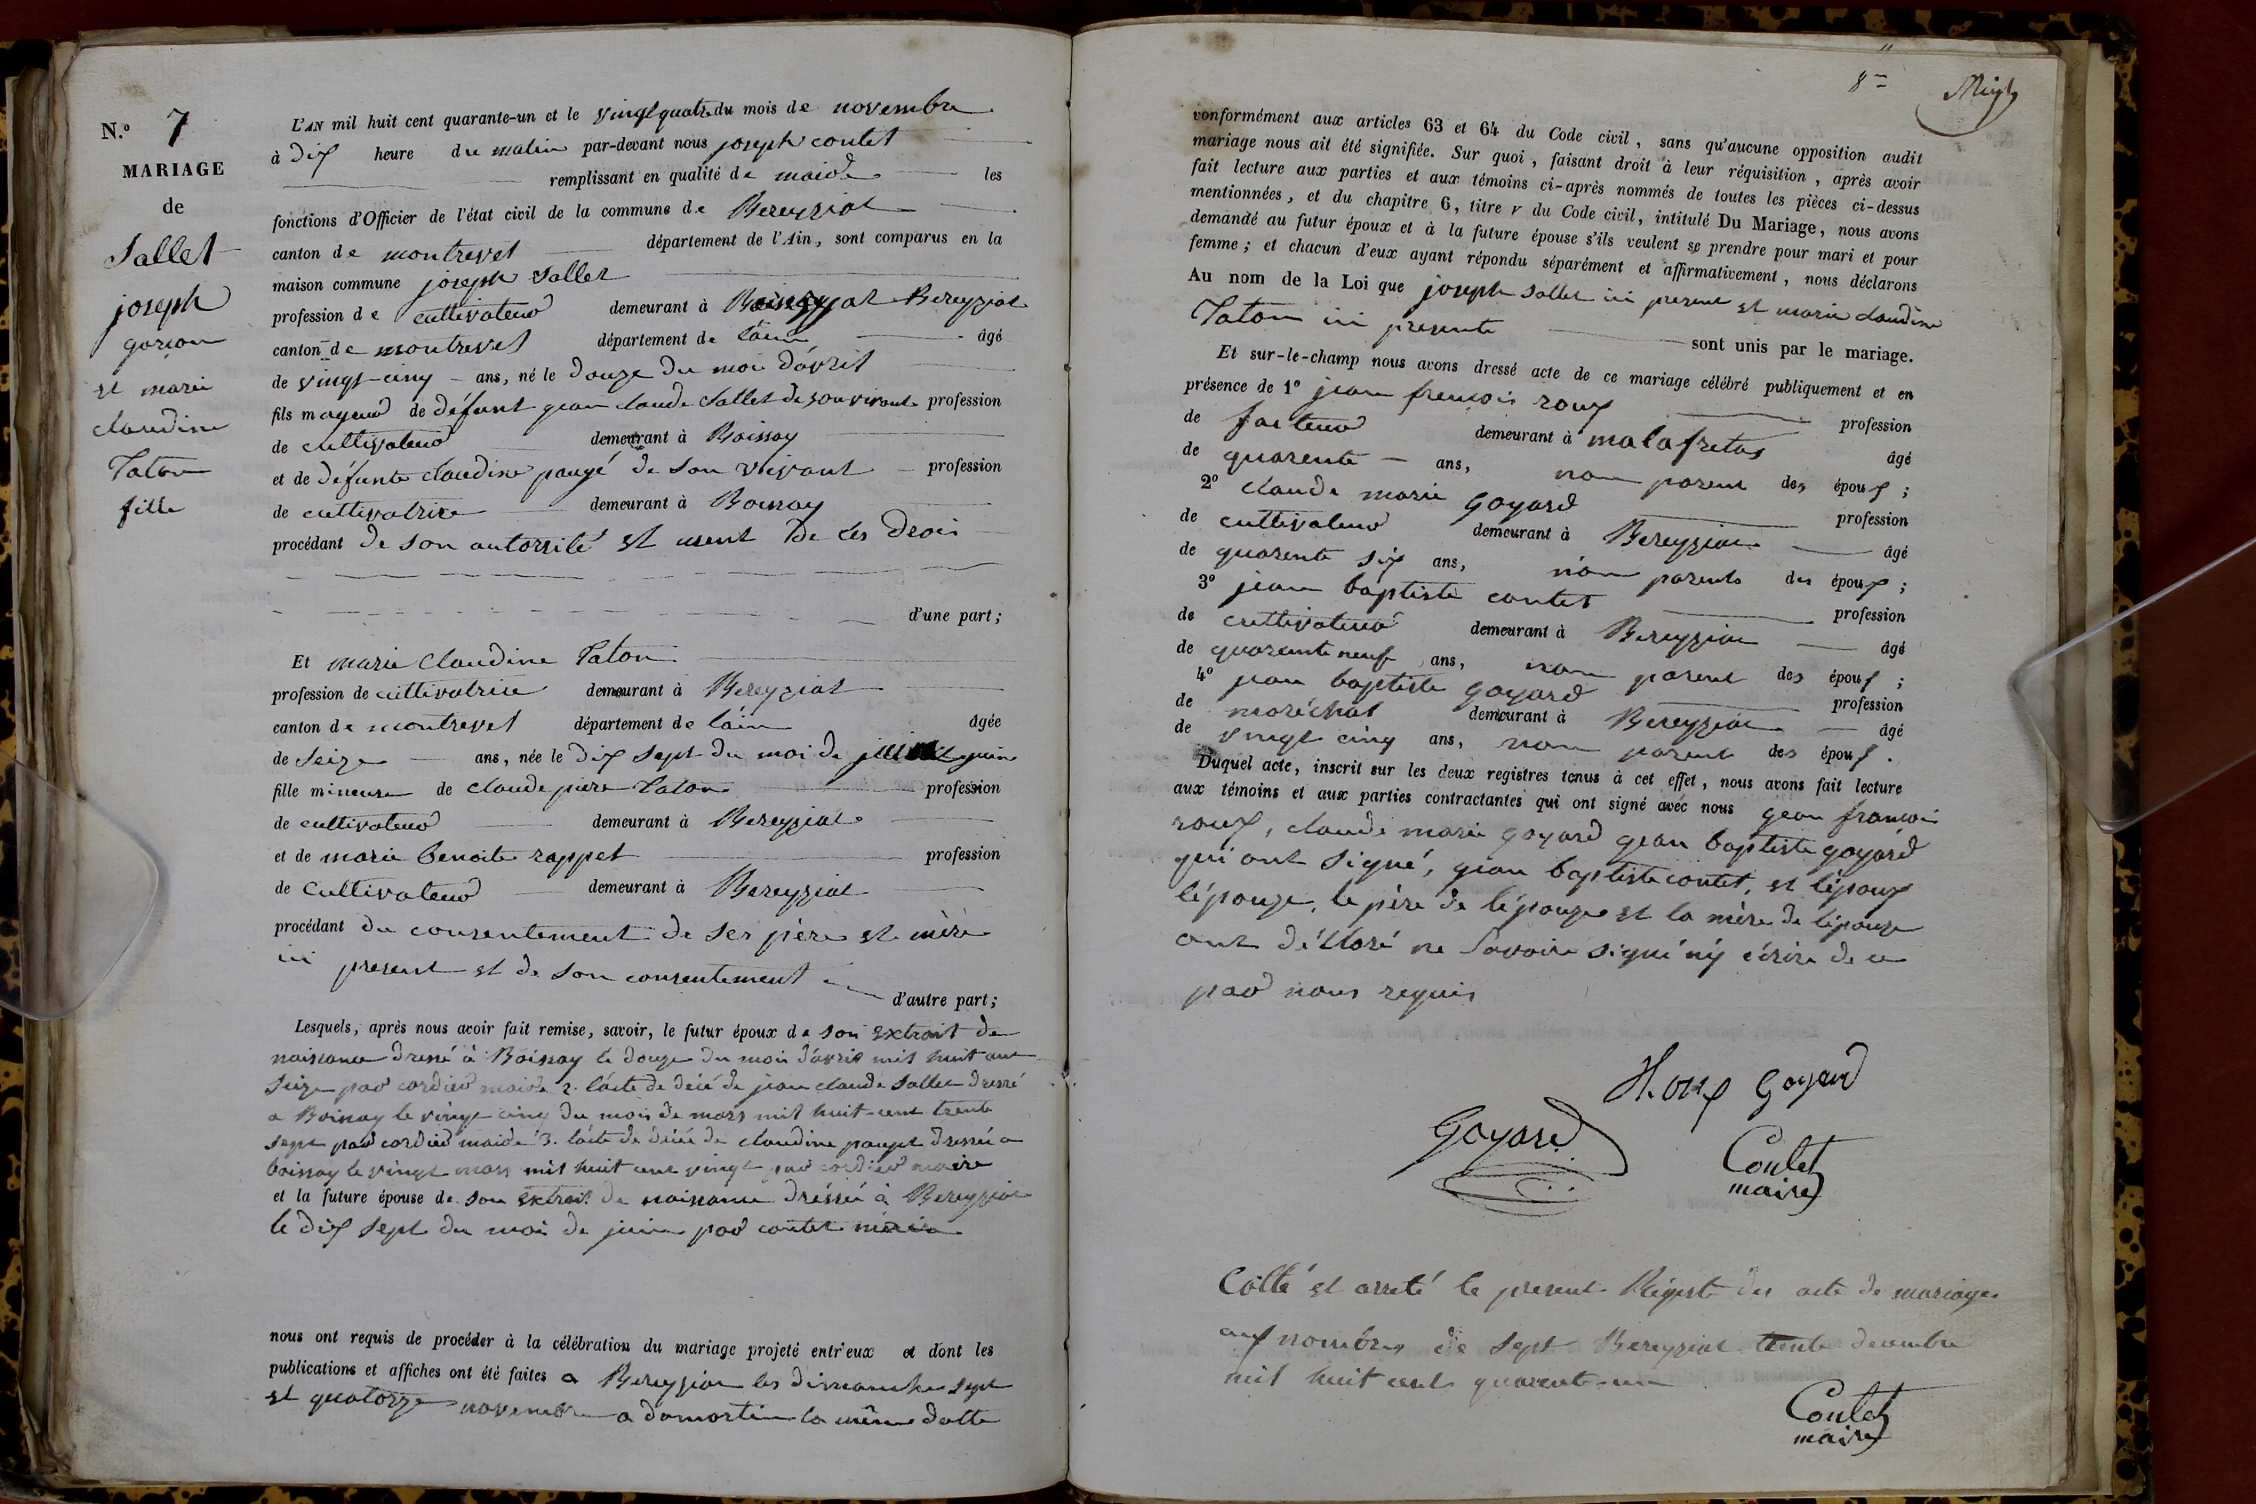 N.º 7
MARIAGE
de
Sallet
joseph
garçon
et marie
claudine
Taton
fille
L'AN mil huit cent quarante-un et le vingt quatre du mois de novembre
à dix heure du matin par-devant nous joseph contet
remplissant en qualité de maire les
fonctions d'Officier de l'état civil de la commune de Bereyziat
canton de montrevel département de l'Ain, sont comparus en la
maison commune joseph Sallet
profession de cultivateur demeurant à Bereyziat
canton de montrevel département de l'ain âgé
de vingt-cinq ans, né le douze du moi d'avril
fils mageur de défunt jean claude Sallet de son vivant profession
de cultivateur demeurant à Boissay
et de défunte claudine paugé de son vivant profession
de cultivatrice demeurant à Boissay
procédant de son autorsité et usent de ces drois
d'une part;
Et marie claudine Taton
profession de cultivatrice demeurant à Bereyziat
canton de montrevel département de l'ain âgée
de seize ans, née le dix sept du moi de juin
fille mineure de claude piere Taton profession
de cultivateur demeurant à Bereyziat
et de marie benoite rappet profession
de cultivateur demeurant à Bereyziat
procédant du consentement de ses père et mère
ici present et de son consentement
d'autre part;
Lesquels, après nous avoir fait remise, savoir, le futur époux de son extrait de
naissance dressé à Boissay le douze du moi d'avril mil huit cent
seize par cordier maire 2. l'acte de décé de jean claude Sallet dressé
a Boissay le vingt cinq du mois de mars mil huit-cent trente
sept par cordier maire 3. l'acte de décée de claudine pauget dressée a
boissay le vingt mars mil huit cent vingt par cordier maire
et la future épouse de son extrait de naissance dréssée à Bereyziat
le dix sept du moi de juin par contet maire
nous ont requis de procéder à la célébration du mariage projeté entr'eux et dont les
publications et affiches ont été faites a Bereyziat les dimanche sept
et quatorze novembre a domartin la même datte
8
conformément aux articles 63 et 64 du Code civil, sans qu'aucune opposition audit
mariage nous ait été signifiée. Sur quoi, faisant droit à leur réquisition, après avoir
fait lecture aux parties et aux témoins ci-après nommés de toutes les pièces ci-dessus
mentionnées, et du chapitre 6, titre v du Code civil, intitulé Du Mariage, nous avons
demandé au futur époux et à la future épouse s'ils veulent se prendre pour mari et pour
femme; et chacun d'eux ayant répondu séparément et affirmativement, nous déclarons
Au nom de la Loi que joseph Sallet ici present et marie claudine
Taton ici presente sont unis par le mariage.
Et sur-le-champ nous avons dressé acte de ce mariage célébré publiquement et en
présence de 1º jean francois roux profession
de facteur demeurant à malafretas âgé
de quarente ans, non parent des époux;
2º claude marie goyard profession
de cultivateur demeurant à Bereyziat âgé
de quarente six ans, non parents des époux;
3º jean baptiste contet profession
de cultivateur demeurant à Bereyziat âgé
de quarente neuf ans, non parent des époux;
4º jean baptiste goyard profession
de maréchal demeurant à Bereyziat âgé
de vingt cinq ans, non parent des époux.
Duquel acte, inscrit sur les deux registres tenus à cet effet, nous avons fait lecture
aux témoins et aux parties contractantes qui ont signé avec nous gean francois
roux, claude marie goyard gean baptiste goyard
qui ont signé, gean baptiste contet, et l'époux
l'épouze, le père de l'épouze et la mère de l'épouze
ont décloré ne savoire signé ny écrire de ce
par nous requis
Roux Goyard
Goyard
Contet
maire
Collé et arreté le present Régistre des acte de mariages
aux nombres de sept Bereyziat trente decembre
mil huit cent quarente-un
Contet
maire